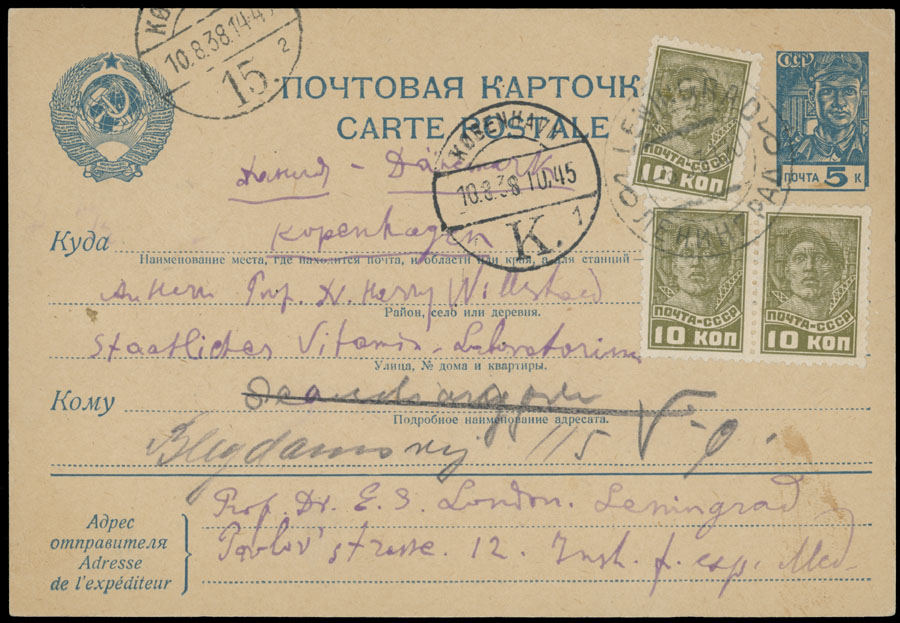 KØ
10.8.38.14-45
15. 2
ПОЧТОВАЯ КАРТОЧК
CARTE POSTALE
KØBENHAVN
10.8.38 10.45
K. 1
LENINGRAD
ЛЕНИНГРАД
ПОЧТА-СССР
10 КОП
СССР
ПОЧТА 5 К
ПОЧТА-СССР
10 КОП
ПОЧТА-СССР
10 КОП
Дания - Dänemark
Куда Kopenhagen
Наименование места, где находится почта, и области или края, а для станций
An Herrn Prof. Dr. Harry Willstaed
Район, село или деревня.
Staatliches Vitamin-Laboratorium
Улица, № дома и квартиры.
Кому
Подробное наименование адресата.
Blegdamsvej 115
Адрес отправителя
Adresse de l'expéditeur
Prof. Dr. E. S. London. Leningrad
Pavlov'strasse. 12. Inst. f. exp. Med